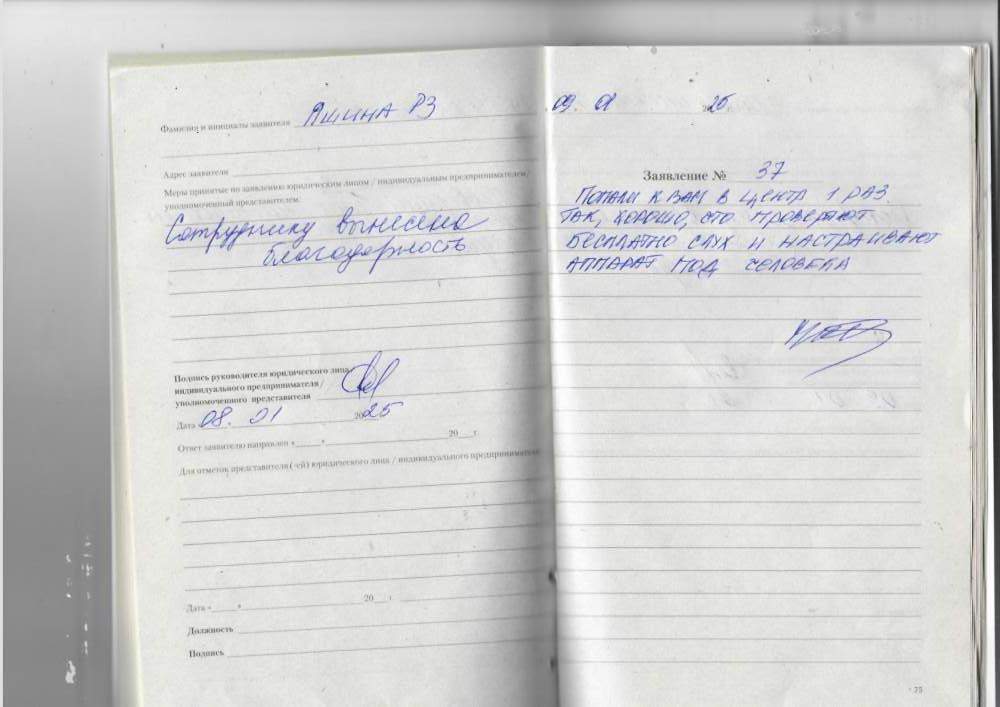 Фамилия и инициалы заявителя Яшина РЗ
Адрес заявителя
Меры принятые по заявлению юридическим лицом / индивидуальным предпринимателем /
уполномоченный представителем:
Сотруднику вынесена
благодарность
Подпись руководителя юридического лица /
индивидуального предпринимателя /
уполномоченного представителя
Дата 08. 01 2025
Ответ заявителю направлен « » 20 г.
Для отметок представителя ( -ей) юридического лица / индивидуального предпринимателя
Дата « » 20 г.
Должность
Подпись
09. 01 2025
Заявление № 37
Попали к вам в центр 1 раз.
Так, хорошо, что проверяют
бесплатно слух и настраивают
аппарат под человека
75